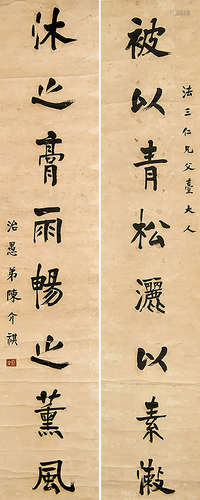 法三仁兄父臺大人
被以青松灑以素瀲
沐之膏雨暢之薰風
治愚弟陳介祺